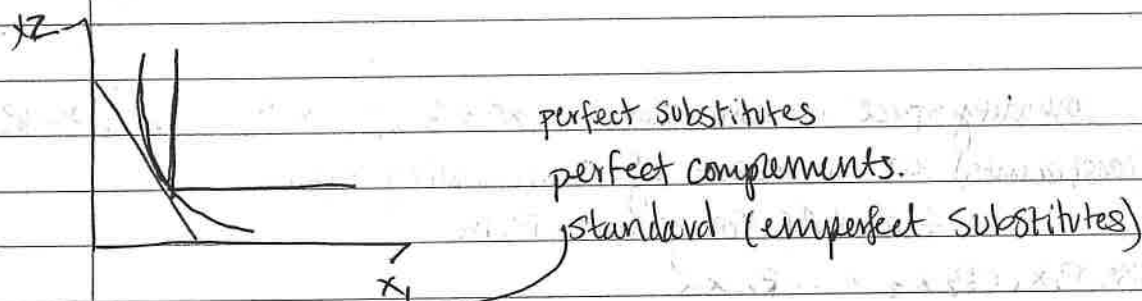 x2
perfect substitutes
perfect complements.
standard (emperfect substitutes)
x1